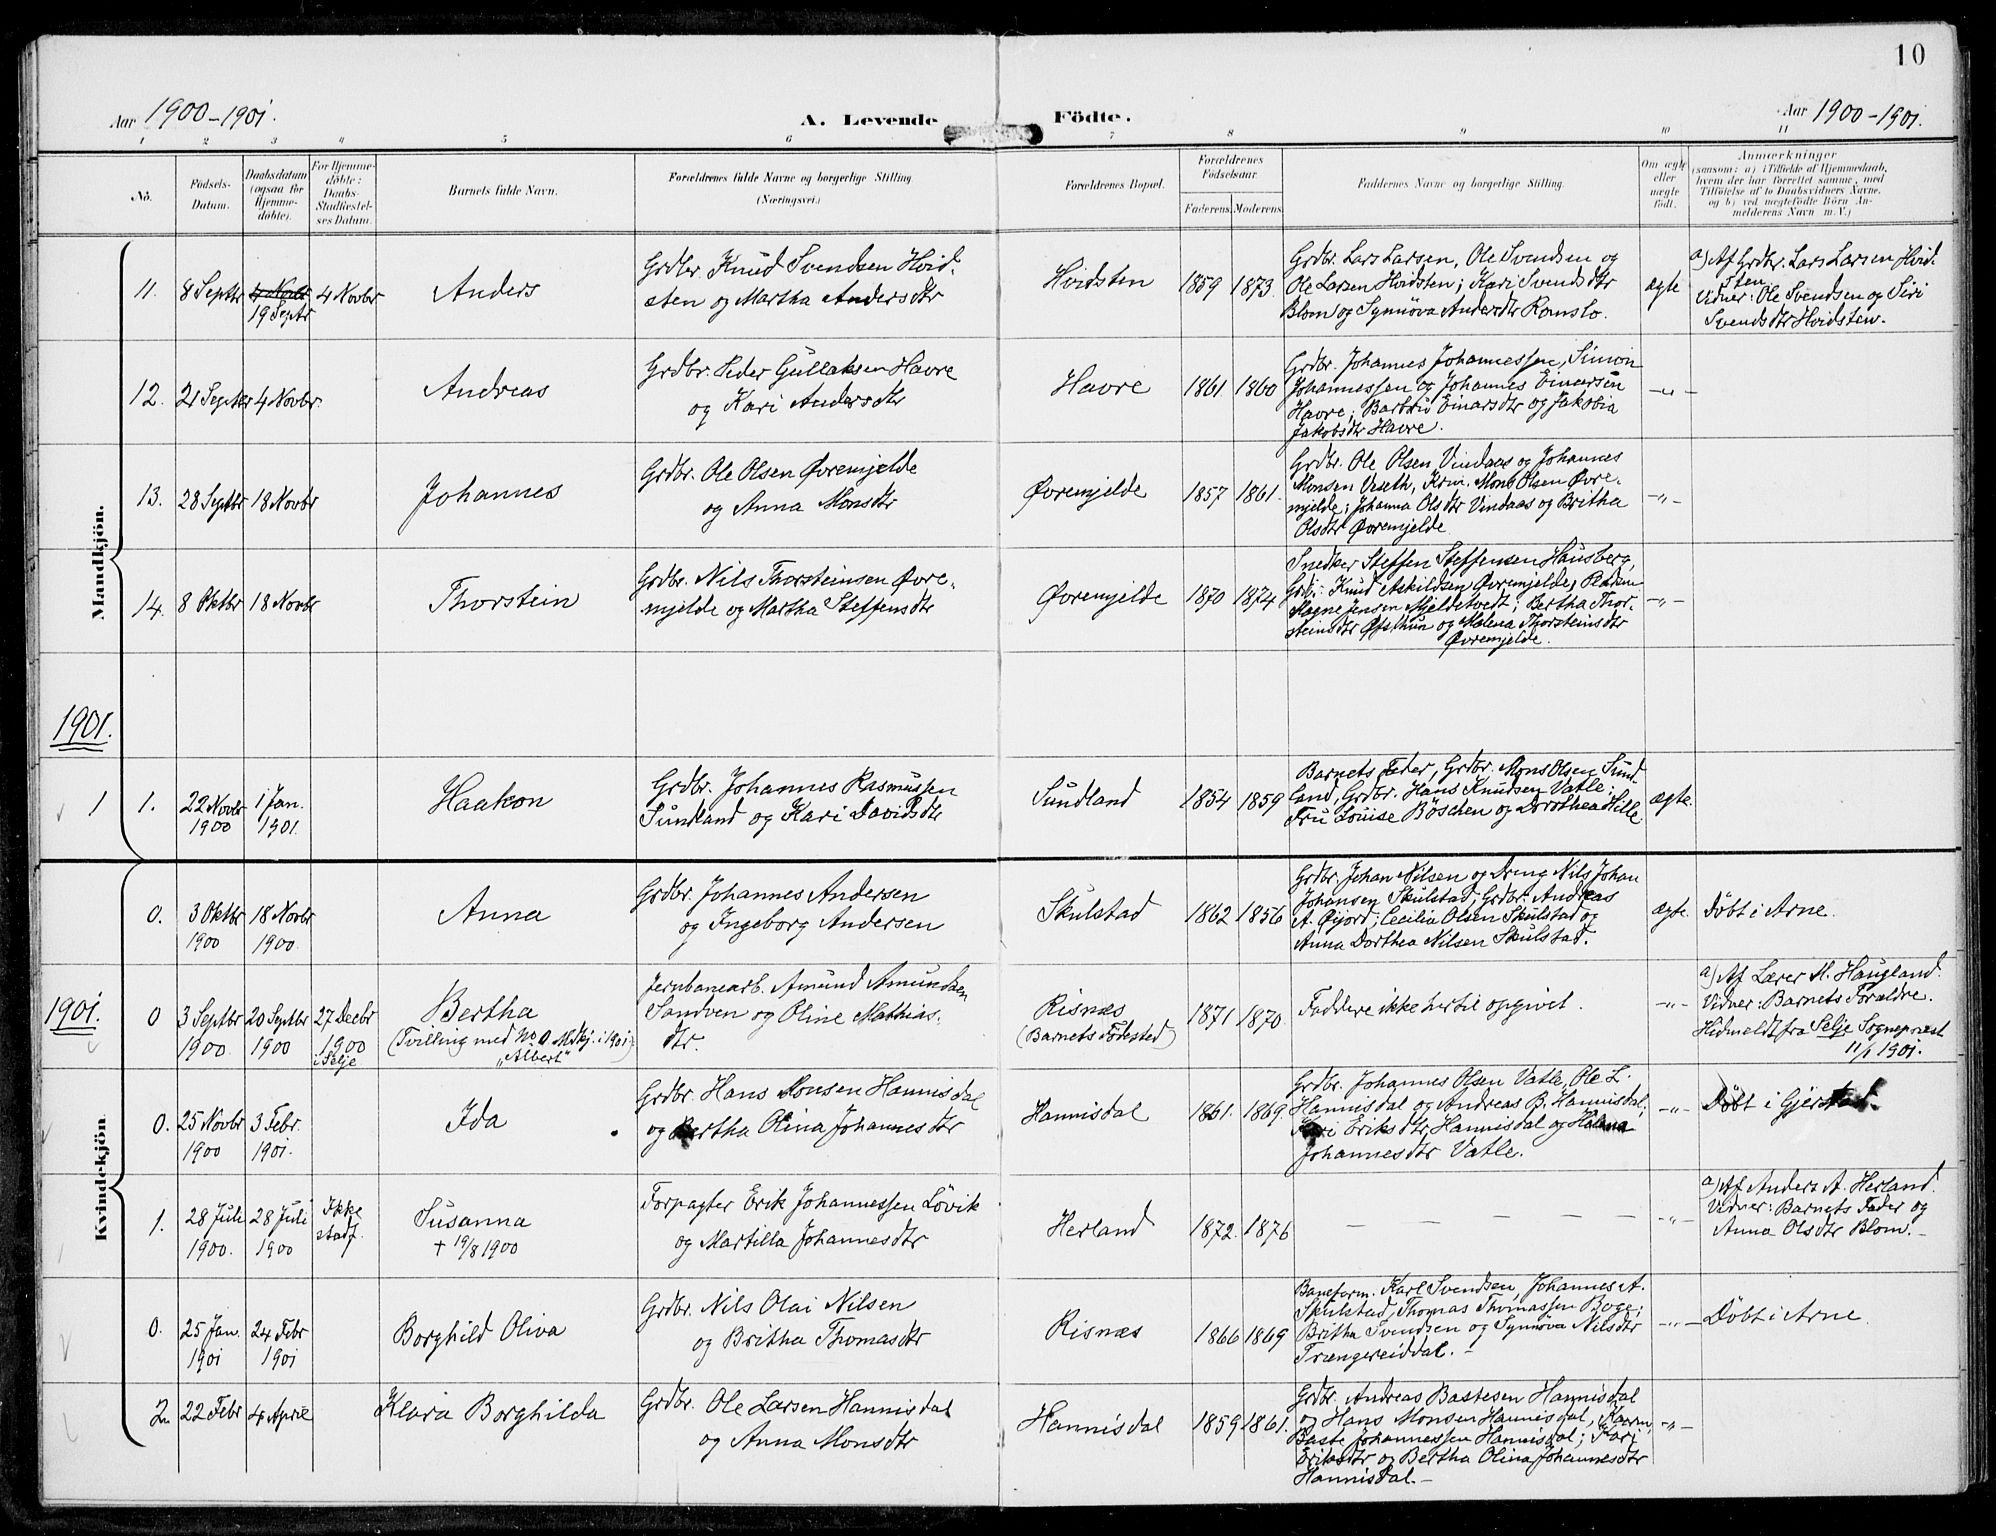 10
Aar 1900-1901.
A. Levende
Födte.
Aar 1900-1901.
1 2 3 4 5 6 7 8 9 10 11
No.
Födsels-
Datum.
Daabsdatum
(ogsaa for
Hjemme-
döbte).
For Hjemme-
döbte:
Daabs-
Stadfæstel-
ses Datum.
Barnets fulde Navn.
Forældrenes fulde Navne og borgerlige Stilling
(Næringsvei.)
Forældrenes Bopæl.
Forældrenes
Födselsaar.
Faderens
Moderens
Faddernes Navne og borgerlige Stilling.
Om ægte
eller
uægte
födt.
Anmærkninger
(saasom: a) i Tilfælde af Hjemmedaab,
hvem der har forrettet samme, med
Tilföielse af to Daabsvidners Navne,
og b) ved uægtefödte Börn An-
melderens Navn m. V.)
Mandkjön.
11.
8 Septbr
4 Novbr
19 Septr
4 Novbr
Anders
Grdbr. Knud Svendsen Hvid-
sten og Martha Andersdtr
Hvidsten
1859
1873
Grdbr. Lars Larsen, Ole Svendsen og
Ole Larsen Hvidsten; Kari Svendsdtr
Blom og Synnöva Andersdtr Romslo.
ægte
a) Af Grdbr. Lars Larsen Hvid-
sten
Vidner: Ole Svendsen og Siri
Svendsdtr Hvidsten.
12.
21 Septbr
4 Novbr.
Andreas
Grdbr. Peder Gullaksen Havre
og Kari Andersdtr
Havre
1861
1860
Grdbr. Johannes Johannessen, Simon
Johannessen og Johannes Einarsen
Havre; Barbru Einarsdtr og Jakobia
Jakobsdtr Havre.
-"-
13.
28 Septbr
18 Novbr
Johannes
Grdbr. Ole Olsen Øvremjelde
og Anna Monsdtr
Øvremjelde
1857
1861.
Grdbr. Ole Olsen Vindaas og Johannes
Monsen Veseth, Krm. Mons Olsen Øvre-
mjelde; Johanna Olsdtr Vindaas og Britha
Olsdtr Øvremjelde
-"-
14.
8 Oktbr
18 Novbr
Thorstein
Grdbr. Nils Thorsteinsen Øvre-
mjelde og Martha Steffensdtr
Øvremjelde
1870
1874
Snedker Steffen Steffensen Hausberg,
Knud Askildsen Øvremjelde,
Magne Jensen Mjeldetvedt; Bertha Thor-
steinsdtr Øfsthun og Malena Thorsteinsdtr
Øvremjelde.
-"-
1901.
1
1.
22 Novbr
1900
1 Jan.
1901
Haakon
Grdbr. Johannes Rasmussen
Sundland og Kari Davidsdtr
Sundland
1854
1859
Barnets Fader, Grdbr. Mons Olsen Sund-
land, Grdbr. Hans Knudsen Vatle;
Fru Louise Böschen og Dorothea Hille
ægte.
Kvindekjön
0.
3 Oktbr
1900
18 Novbr
1900.
Anna
Grdbr. Johannes Andersen
og Ingeborg Andersen
Skulstad
1862
1856
Grdbr. Johan Nilsen og Dreng Nils Johan
Johansen Skulstad; Grdbr. Andreas
A. Øijord; Cecilia Olsen Skulstad og
Anna Dorthea Nilsen Skulstad.
ægte.
Döbt i Arne.
1901.
0
3 Septbr
1900
20 Septbr
1900
27 Decbr
1900
i Selje
Bertha
(Tvilling med No 0 Mdkj. i 1901)
"Albert"
Jernbanearb. Amund Amundsen
Sandven og Oline Mathias-
dtr.
Risnæs
(Barnets Födested)
1871
1870
Faddere ikke hertil opgivet.
-"-
a) Af Lærer M. Haugland.
Vidner: Barnets Forældre.
Hidmeldt fra Selje Sogneprest
11/1 1901.
0.
25 Novbr
1900
3 Febr.
1901.
Ida
Grdbr. Hans Monsen Hannisdal
og Bertha Olina Johannesdtr
Hannisdal
1861.
1869.
Grdbr. Johannes Olsen Vatle, Ole L.
Hannisdal og Andreas B. Hannisdal;
Kari Eriksdtr Hannisdal og Helena
Johannesdtr Vatle.
-"-
Döbt i Gjerstad.
1.
28 Juli
1900.
28 Juli
1900
Ikke
stadf.
Susanna
† 19/8 1900
Forpagter Erik Johannessen Lövik
og Martilla Johannesdtr
Herland
1872.
1876
— — — — — —
-"-
a) Af Anders A. Herland.
Vidner: Barnets Fader og
Anna Olsdtr Blom.-
0.
25 Jan.
1901
24 Febr
1901
Borghild Oliva
Grdbr. Nils Olai Nilsen
og Britha Thomasdtr
Risnæs
1866
1869
Baneform. Karl Svendsen, Johannes A.
Skulstad, Thomas Thomassen Boge;
Britha Svendsen og Synnöva Nilsdtr
Trængereiddal.-
-"-
Döbt i Arne.
2.
22 Febr
4 April
Klara Borghilda
Grdbr. Ole Larsen Hannisdal
og Anna Monsdtr
Hannisdal
1859
1861.
Grdbr. Andreas Bastesen Hannisdal
og Hans Monsen Hannisdal,
Baste Johannessen Hannisdal; Kari
Eriksdtr og Bertha Olina Johannesdtr
Hannisdal.-
-"-